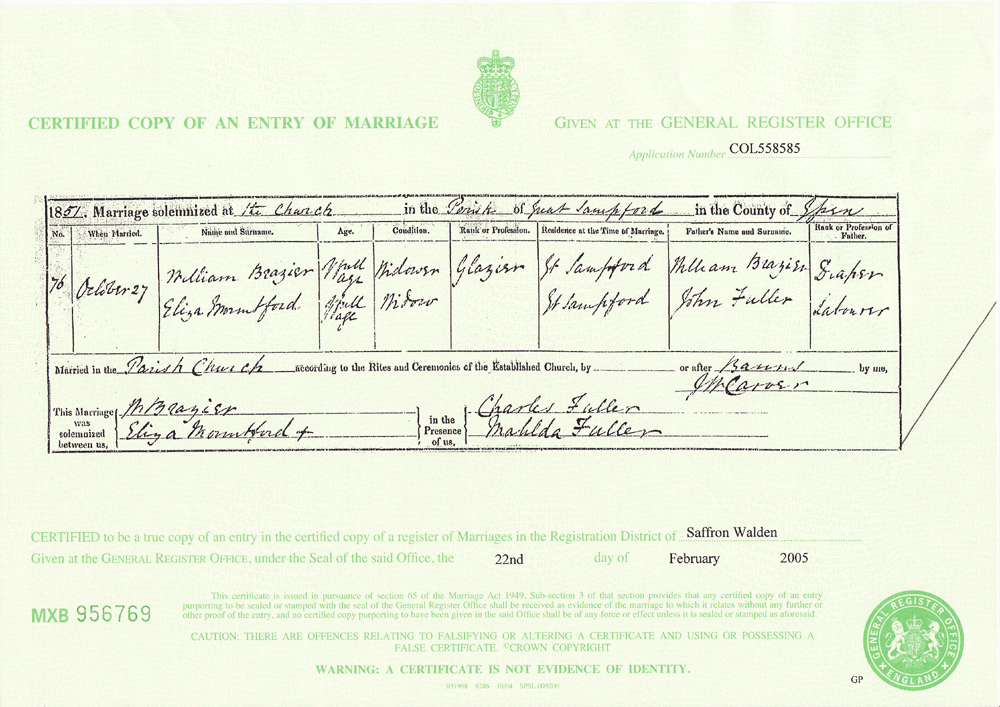 CERTIFIED COPY OF AN ENTRY OF MARRIAGE
GIVEN AT THE GENERAL REGISTER OFFICE
Application Number COL558585
1851. Marriage solemnized at the Church in the Parish of Great Sampford in the County of Essex
No. When Married. Name and Surname. Age. Condition. Rank or Profession. Residence at the Time of Marriage. Father's Name and Surname. Rank or Profession of Father.
76 October 27 William Brazier Full Age Widower Glazier Gt Sampford William Brazier Draper
Eliza Mountford Full Age Widow Gt Sampford John Fuller Labourer
Married in the Parish Church according to the Rites and Ceremonies of the Established Church, by or after Banns by me,
JW Carver
This Marriage was solemnized between us,
W Brazier
Eliza Mountford +
in the Presence of us,
Charles Fuller
Matilda Fuller
CERTIFIED to be a true copy of an entry in the certified copy of a register of Marriages in the Registration District of Saffron Walden
Given at the GENERAL REGISTER OFFICE, under the Seal of the said Office, the 22nd day of February 2005
MXB 956769
This certificate is issued in pursuance of section 65 of the Marriage Act 1949. Sub-section 3 of that section provides that any certified copy of an entry
purporting to be sealed or stamped with the seal of the General Register Office shall be received as evidence of the marriage to which it relates without any further or
other proof of the entry, and no certified copy purporting to have been given in the said Office shall be of any force or effect unless it is sealed or stamped as aforesaid.
CAUTION: THERE ARE OFFENCES RELATING TO FALSIFYING OR ALTERING A CERTIFICATE AND USING OR POSSESSING A
FALSE CERTIFICATE. ©CROWN COPYRIGHT
WARNING: A CERTIFICATE IS NOT EVIDENCE OF IDENTITY.
031998 0286 10/04 SPSL 009200
GP
GENERAL REGISTER OFFICE
ENGLAND